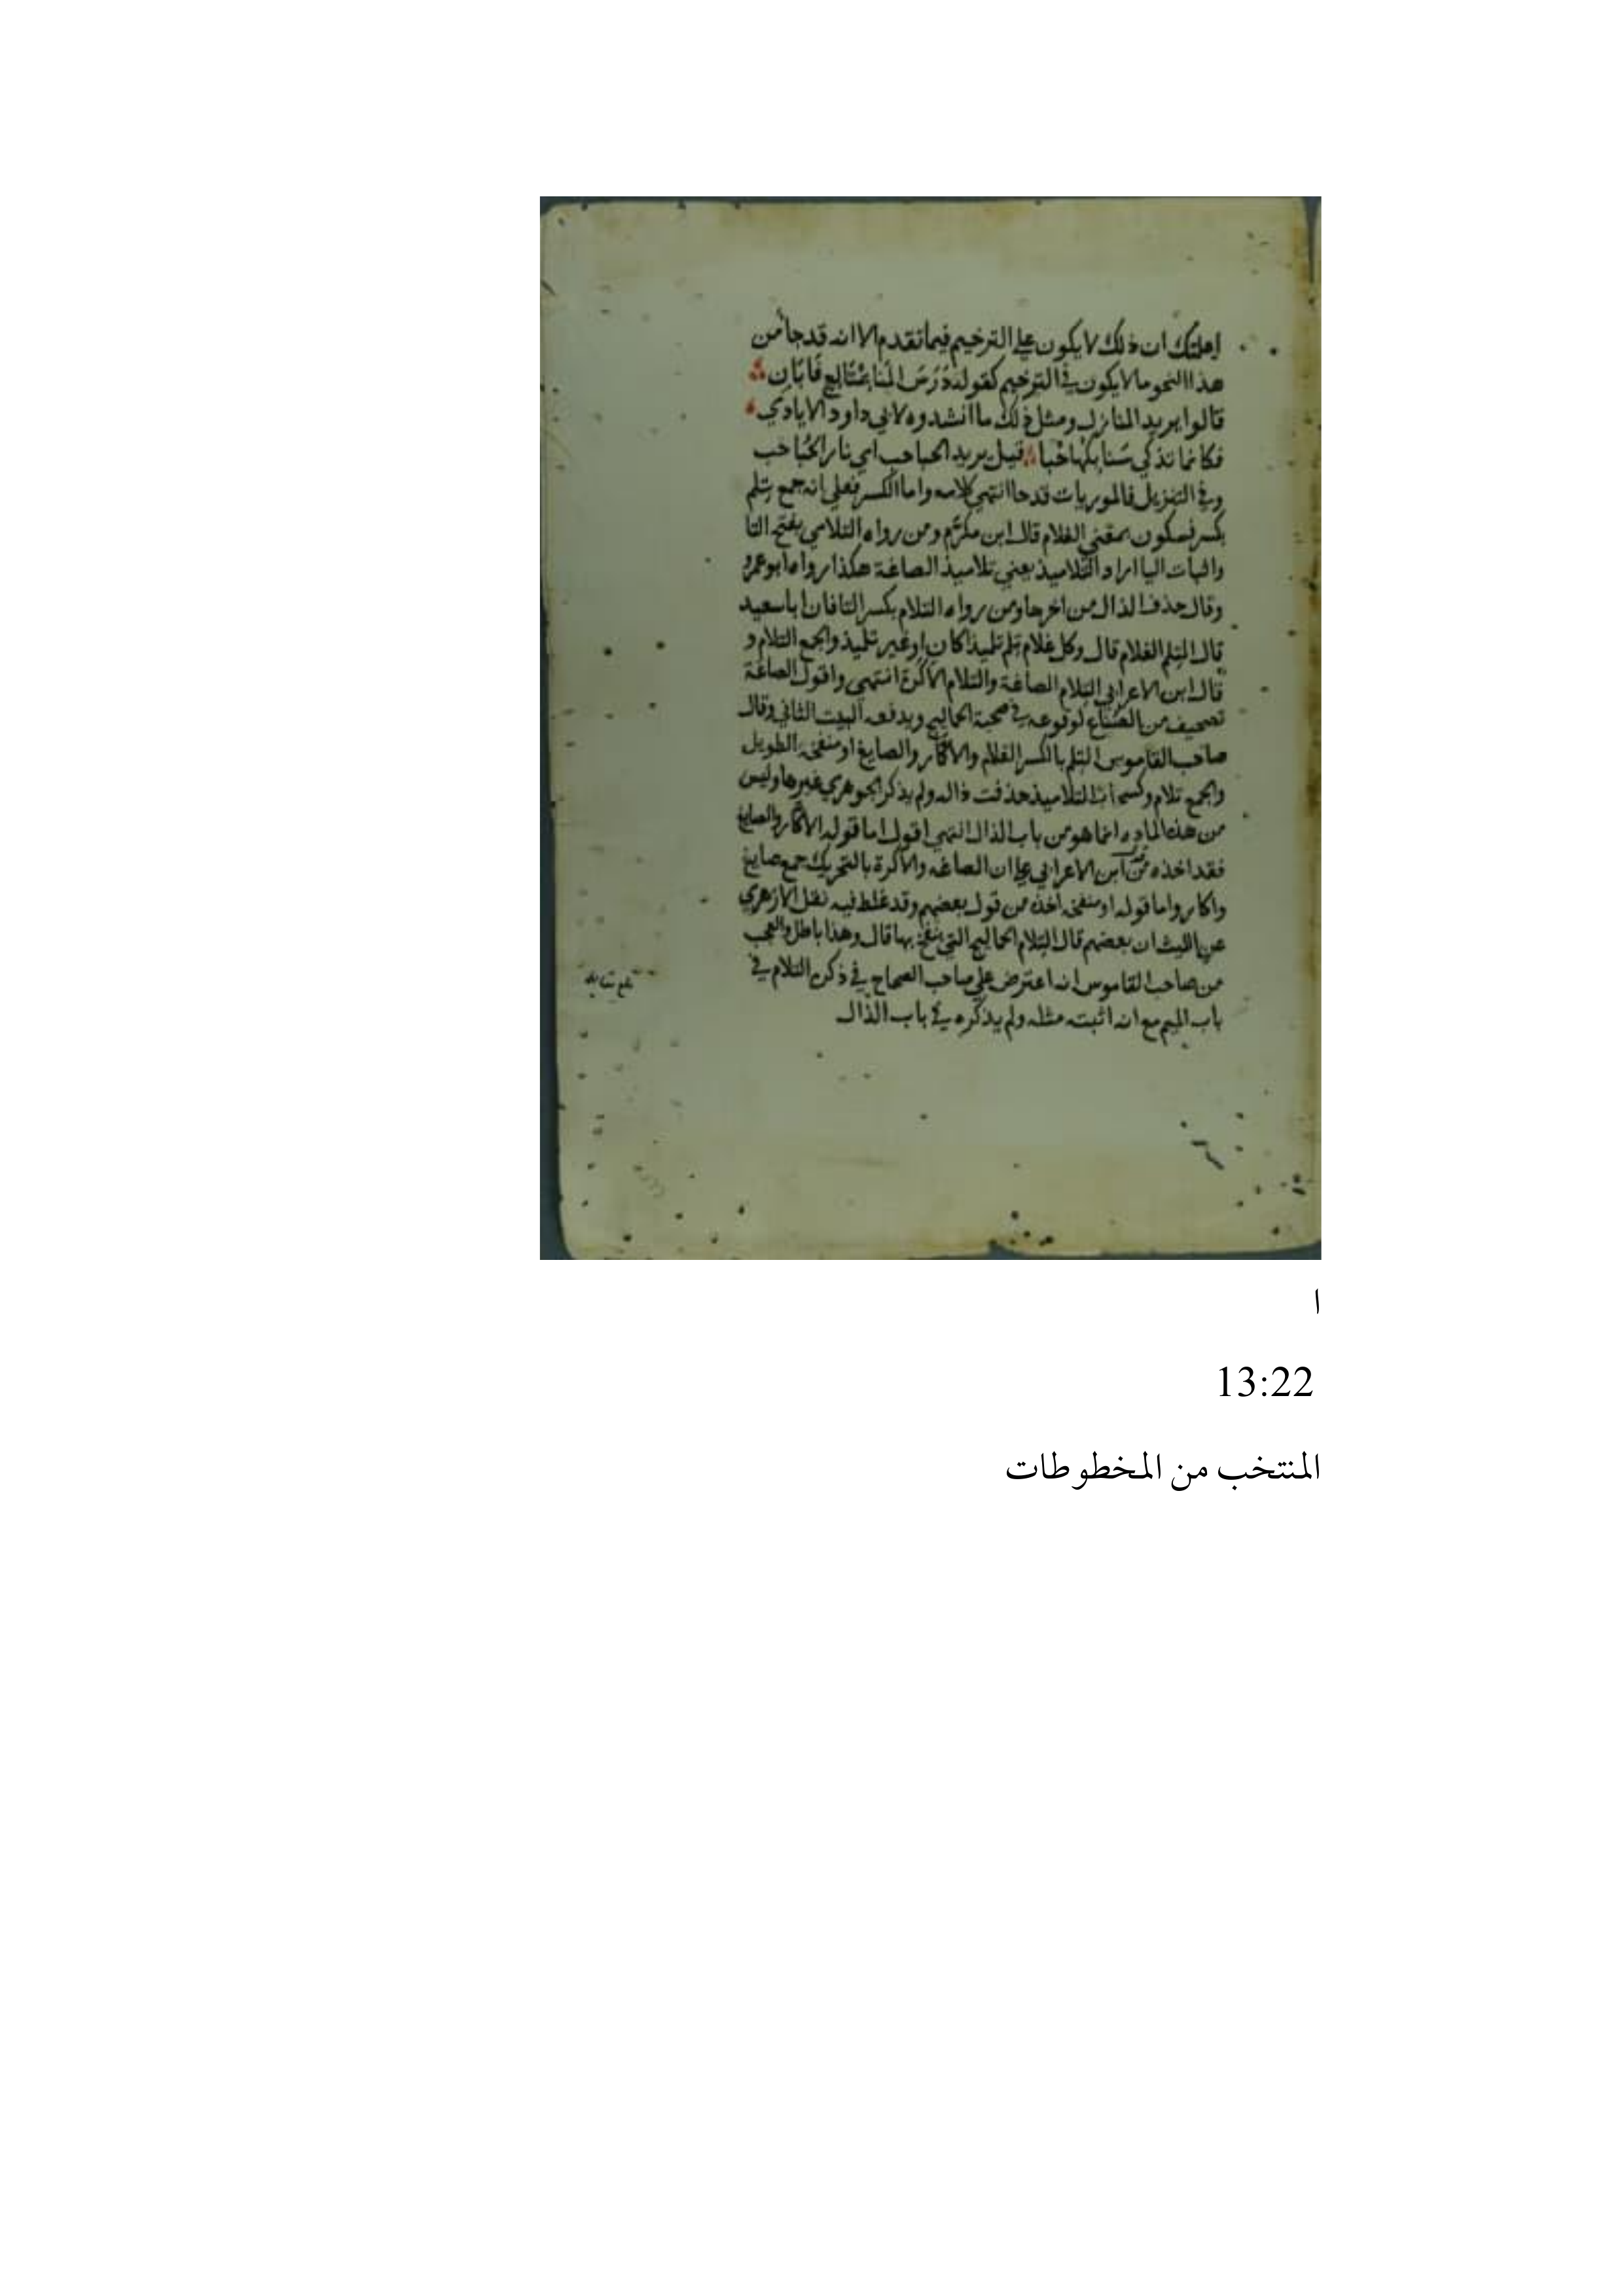 اعلمتك ان ذلك لا يكون علي الترخيم فيما تقدم الا انه قد جا من
هذا النحو ما لا يكون في الترخيم كقوله دَرَسَ المَنَا بمُتَالِعٍ فَأَبَانِ
قالوا يريد المنازل ومثل ذلك ما انشدوه لابي داود الايادي
فكانما تذكي سنابكها حُبَا قيل يريد الحباحب اي نار الحُباحب
وفي التنزيل فالموريات قدحا انتهي كلامه واما الكسر فعلي انه جمع تِلم
بكسر فسكون بمعني الغلام قال ابن مكرّم ومن رواه التلامي بفتح التا
واثبات اليا اراد التلاميذ يعني تلاميذ الصاغة هكذا رواه ابو عمرو
وقال حذف الذال من اخرها ومن رواه التلام بكسر التا فان ابا سعيد
قال التلم الغلام قال وكل غلام تلم تلميذا كان او غير تلميذ والجمع التلام و
قال ابن الاعرابي التلام الصاغة والتلام الاكرة انتهي واقول الصاغة
تصحيف من الصُنّاع لوقوعه في صحبة الحماليج ويدفعه البيت الثاني وقال
صاحب القاموس التلم بالكسر الغلام والاكّار والصايغ او منفخه الطويل
والجمع تلام وكسحاب التلاميذ حذفت ذاله ولم يذكر الجوهري غيرها وليس
من هذه الماده انما هو من باب الذال انتهي اقول اما قوله الاكّار والصايغ
فقد اخذه من ابن الاعرابي علي ان الصاغه والاكرة بالتحريك جمع صايغ
واكار واما قوله او منفخه اخذه من قول بعضهم وقد غلط فيه نقل الازهري
عن الليث ان بعضهم قال التلام الحماليج التي ينفخ بها قال وهذا باطل والعجب
من صاحب القاموس انه اعترض علي صاحب الصحاح في ذكره التلام في
باب الميم مع انه اثبته مثله ولم يذكره في باب الذال
بلغ مقابله
ا
13:22
المنتخب من المخطوطات